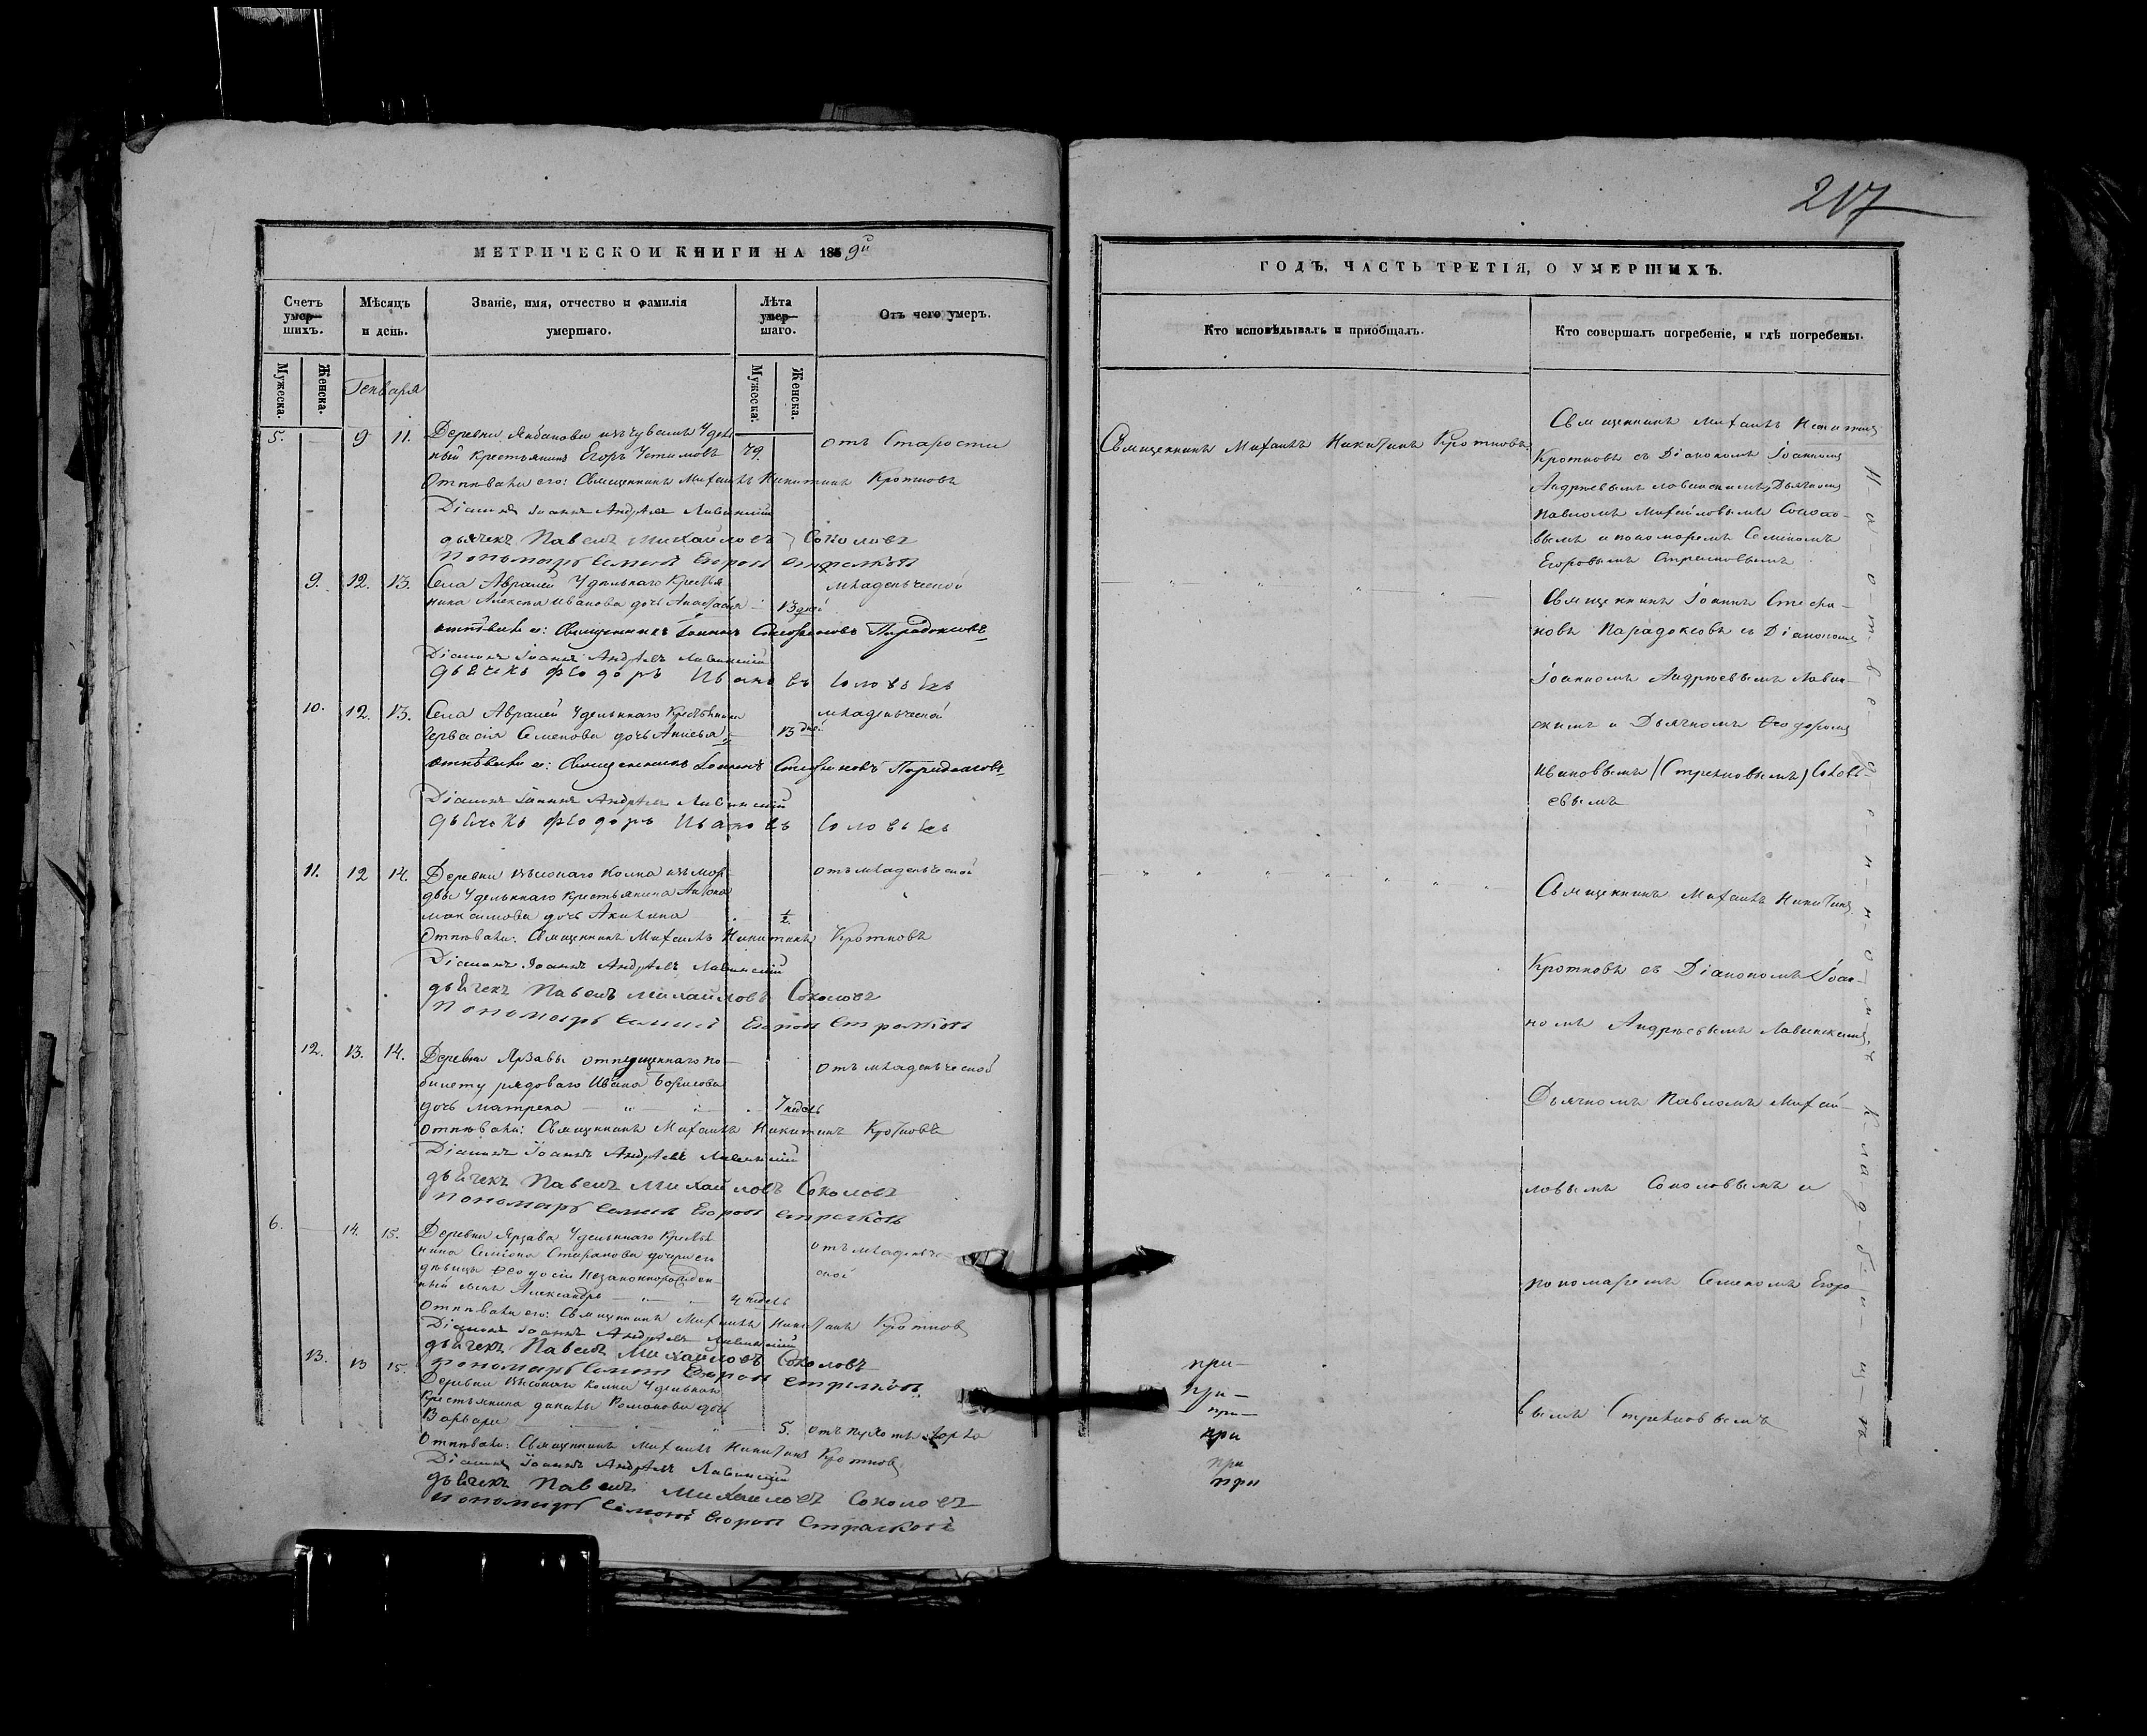 217
МЕТРИЧЕСКОЙ КНИГИ НА 1859й
ГОДЪ, ЧАСТЬ ТРЕТІЯ, О УМЕРШИХЪ.
Счетъ умер-шихъ.
Мѣсяцъ и день.
Званіе, имя, отчество и фамилія умершаго.
Лѣта умер-шаго.
Отъ чего умеръ.
Кто исповѣдывалъ и пріобщалъ.
Кто совершалъ погребеніе, и гдѣ погребены.
Мужеска.
Женска.
Генваря
Мужеска.
Женска.
5. 9 11. Деревни изъ чувашъ Удѣль
ный крестьянинъ Егоръ Устимовъ 79. отъ Старости
Отпѣвали его: Священникъ Михаилъ Никитинъ Кротковъ
Діаконъ Іоаннъ Андреевъ Лавинскій
дьячекъ Павелъ Михайловъ Соколовъ
Пономарь Семенъ Егоровъ Стрелковъ
9. 12. 13. Села Авралей Удѣльнаго Крестья
нина Алексея Иванова дочь Анастасія 13 дней младенческой
отпѣвали ее: Священникъ Іоаннъ Стефановъ Парадоксовъ
Діаконъ Іоаннъ Андреевъ Лавинскій
дьячекъ Феодоръ Ивановъ Соловьевъ
10. 12. 13. Села Авралей Удельнаго Крестьянина
Гервасія Семенова дочь Анисья 13 дней младенческой
отпѣвали ее: Священникъ Іоаннъ Стефановъ Парадоксовъ
Діаконъ Іоаннъ Андреевъ Лавинскій
дьячекъ Феодоръ Ивановъ Соловьевъ
11. 12 14. Деревни Высокаго Колка изъ мор
двы Удельнаго крестьянина Антона
Максимова дочь Акилина 1/2. отъ младенческой
Отпѣвали: Священникъ Михаилъ Никитинъ Кротковъ
Діаконъ Іоаннъ Андреевъ Лавинскій
дьячекъ Павелъ Михайловъ Соколовъ
Пономарь Семенъ Егоровъ Стрелковъ
12. 13. 14. Деревни отпущеннаго по
билету рядоваго Ивана Борисова
дочь Матрена 7 недель отъ младенческой
отпѣвали: Священникъ Михаилъ Никитинъ Кротковъ
Діаконъ Іоаннъ Андреевъ Лавинскій
дьячекъ Павелъ Михайловъ Соколовъ
Пономарь Семенъ Егоровъ Стрелковъ
6. 14. 15. Деревни Удельнаго Крестья
нина Семіона Стефанова дочери
дѣвицы Феодосіи Незаконнорожден-
ный сынъ Александръ 4 недель отъ младенче
ской
Отпѣвали его: Священникъ Михаилъ Никитинъ Кротковъ
Діаконъ Іоаннъ Андреевъ Лавинскій
дьячекъ Павелъ Михайловъ Соколовъ
Пономарь Семенъ Егоровъ Стрелковъ
13. 13 15. Деревни Высокаго Колка Удельнаго
крестьянина Романова дочь
Варвара 5.
Отпѣвали: Священникъ Михаилъ Никитинъ Кротковъ
Діаконъ Іоаннъ Андреевъ Лавинскій
дьячекъ Павелъ Михайловъ Соколовъ
Пономарь Семенъ Егоровъ Стрелковъ
Священникъ Михаилъ Никитинъ Кротковъ
при-
при-
при-
при
при
при
Священникъ Михаилъ Никитинъ
Кротковъ съ Діакономъ Іоанномъ
Андреевымъ Лавинскимъ, Дьячкомъ
Павломъ Михайловымъ Соколо-
вымъ и пономаремъ Семеномъ
Егоровымъ Стрелковымъ
Священникъ Іоаннъ Стефа-
новъ Парадоксовъ съ Діакономъ
Іоанномъ Андреевымъ Лавин-
скимъ и Дьячкомъ Феодоромъ
Ивановымъ (Стрелковымъ) Соловь-
евымъ
Священникъ Михаилъ Никитинъ
Кротковъ съ Діакономъ Іоан-
номъ Андреевымъ Лавинскимъ,
Дьячкомъ Павломъ Михай-
ловымъ Соколовымъ и
пономаремъ Семеномъ Егоро-
вымъ Стрелковымъ
На отведенномъ кладбищѣ